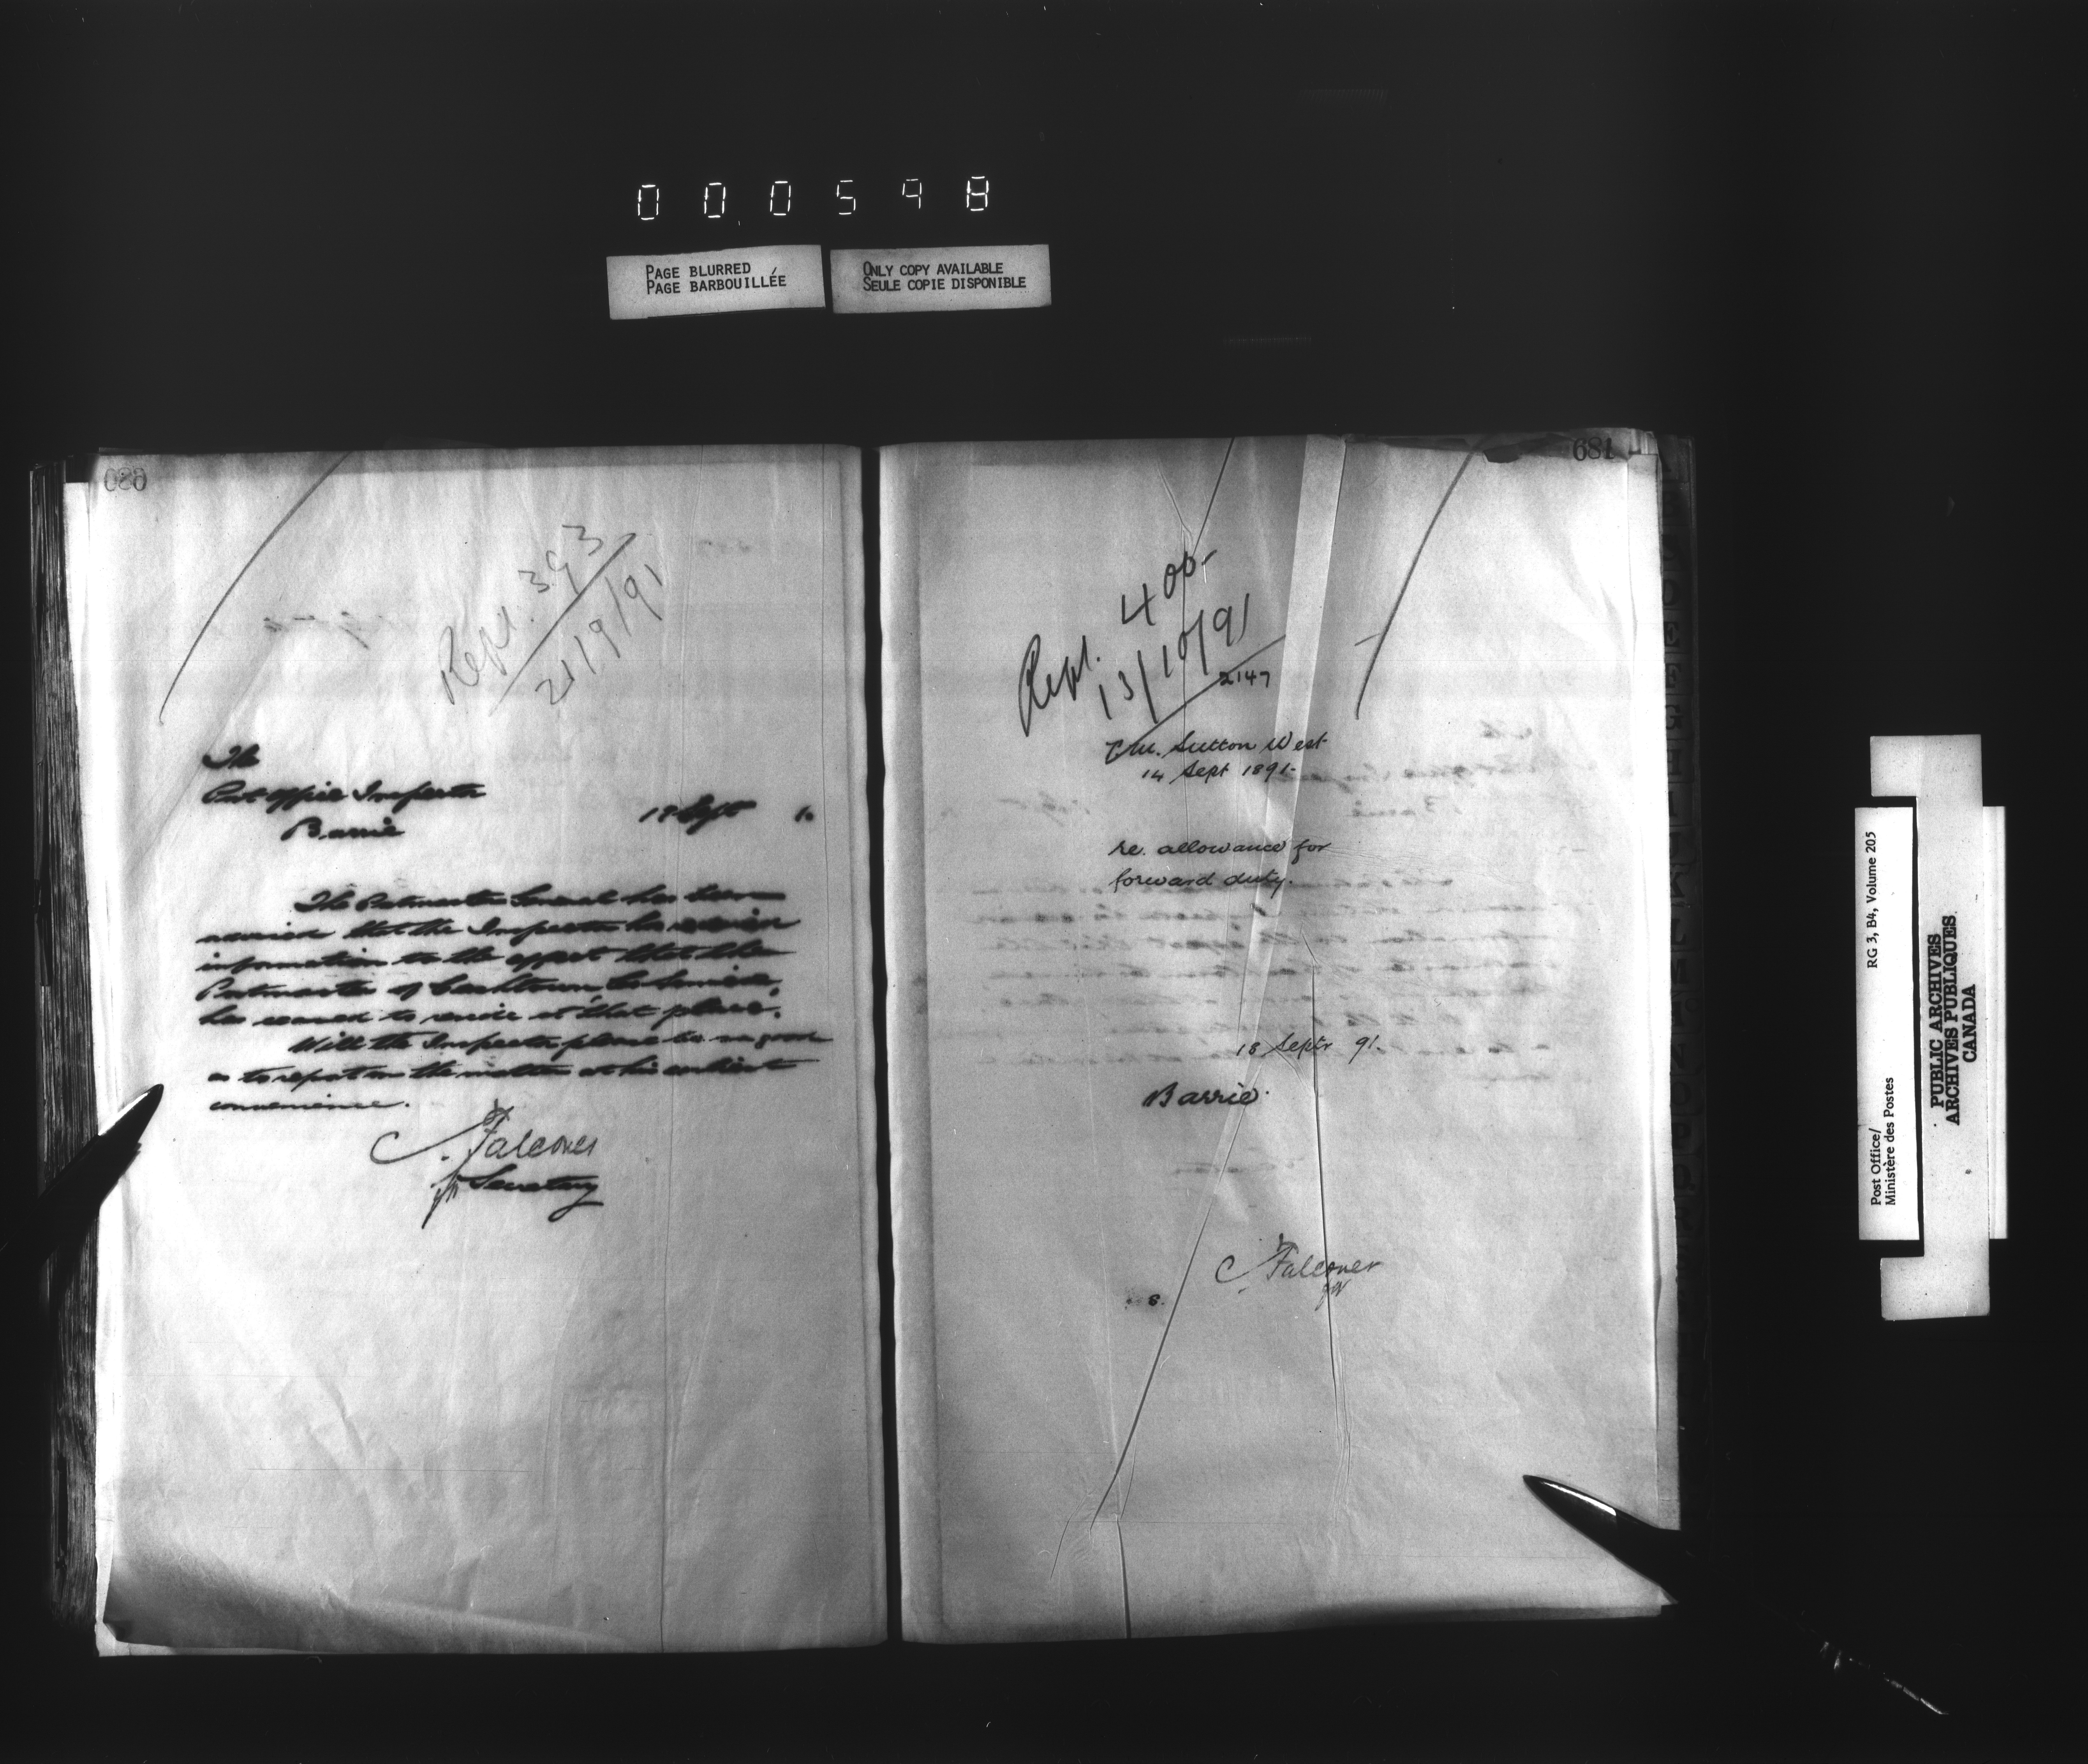 000598
PAGE BLURRED
PAGE BARBOUILLÉE
ONLY COPY AVAILABLE
SEULE COPIE DISPONIBLE
680
Repl. 393
21/9/91
The
Post Office Inspector
Barrie
18 Sept 1.
The Postmaster General has been
advised that the Inspector has
information to the effect that the
Postmaster of Cashtown Co Simcoe,
has ceased to reside at that place.
Will the Inspector please be so good
as to report on the matter at his earliest
convenience.
C. Falconer
for Secretary
681
Repl. 400
13/10/91
2147
P.M. Sutton West
14 Sept 1891.
re. allowance for
forward duty.
18 Septr 91.
Barrie.
C Falconer
for
S.
Post Office/
Ministère des Postes
RG 3, B4, Volume 205
PUBLIC ARCHIVES
ARCHIVES PUBLIQUES
CANADA